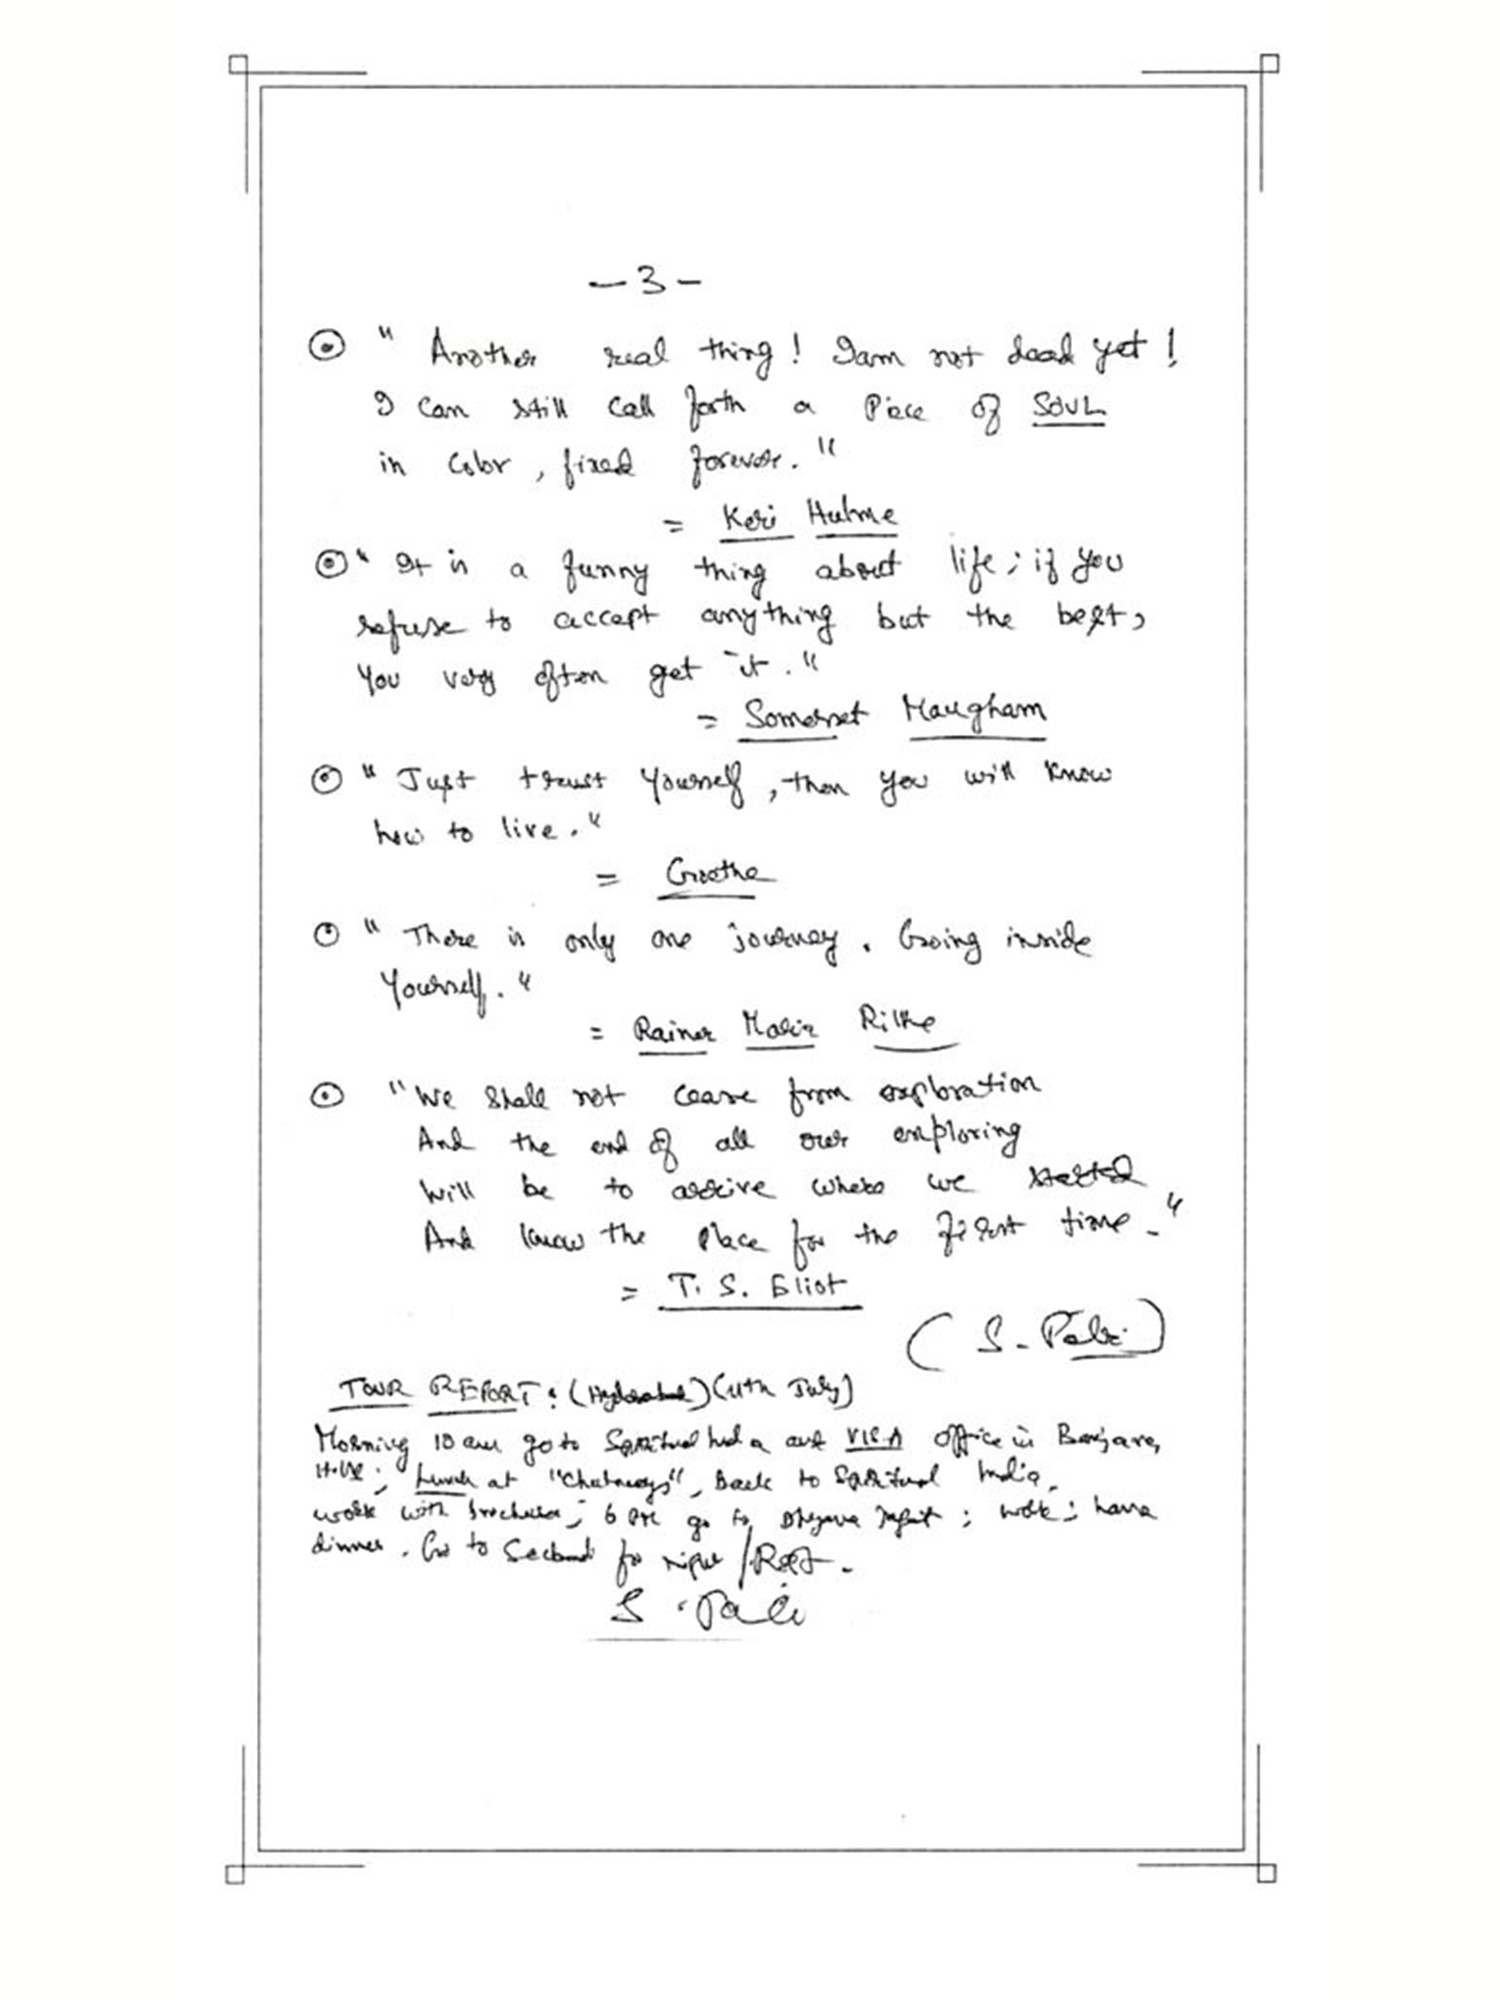 -3-
" Another real thing! I am not dead yet!
I can still call forth a piece of SOUL
in color, fixed forever. "
= Keri Hulme
" It is a funny thing about life; if you
refuse to accept anything but the best,
You very often get it. "
= Somerset Maugham
" Just trust yourself, then you will know
how to live. "
= Goethe
" There is only one journey. Going inside
Yourself. "
= Rainer Maria Rilke
" We shall not cease from exploration
And the end of all our exploring
Will be to arrive where we started
And know the place for the first time. "
= T. S. Eliot
(S. Patri)
TOUR REPORT: (Hyderabad) (11th July)
Morning 10 am go to Spiritual India and VISA office in Banjara
Hills; Lunch at "Chutneys", Back to Spiritual India,
work with brochures; 6 PM go to Dhyana ; work; have
dinner. Go to Secbad for night / Rest.
S. Patri